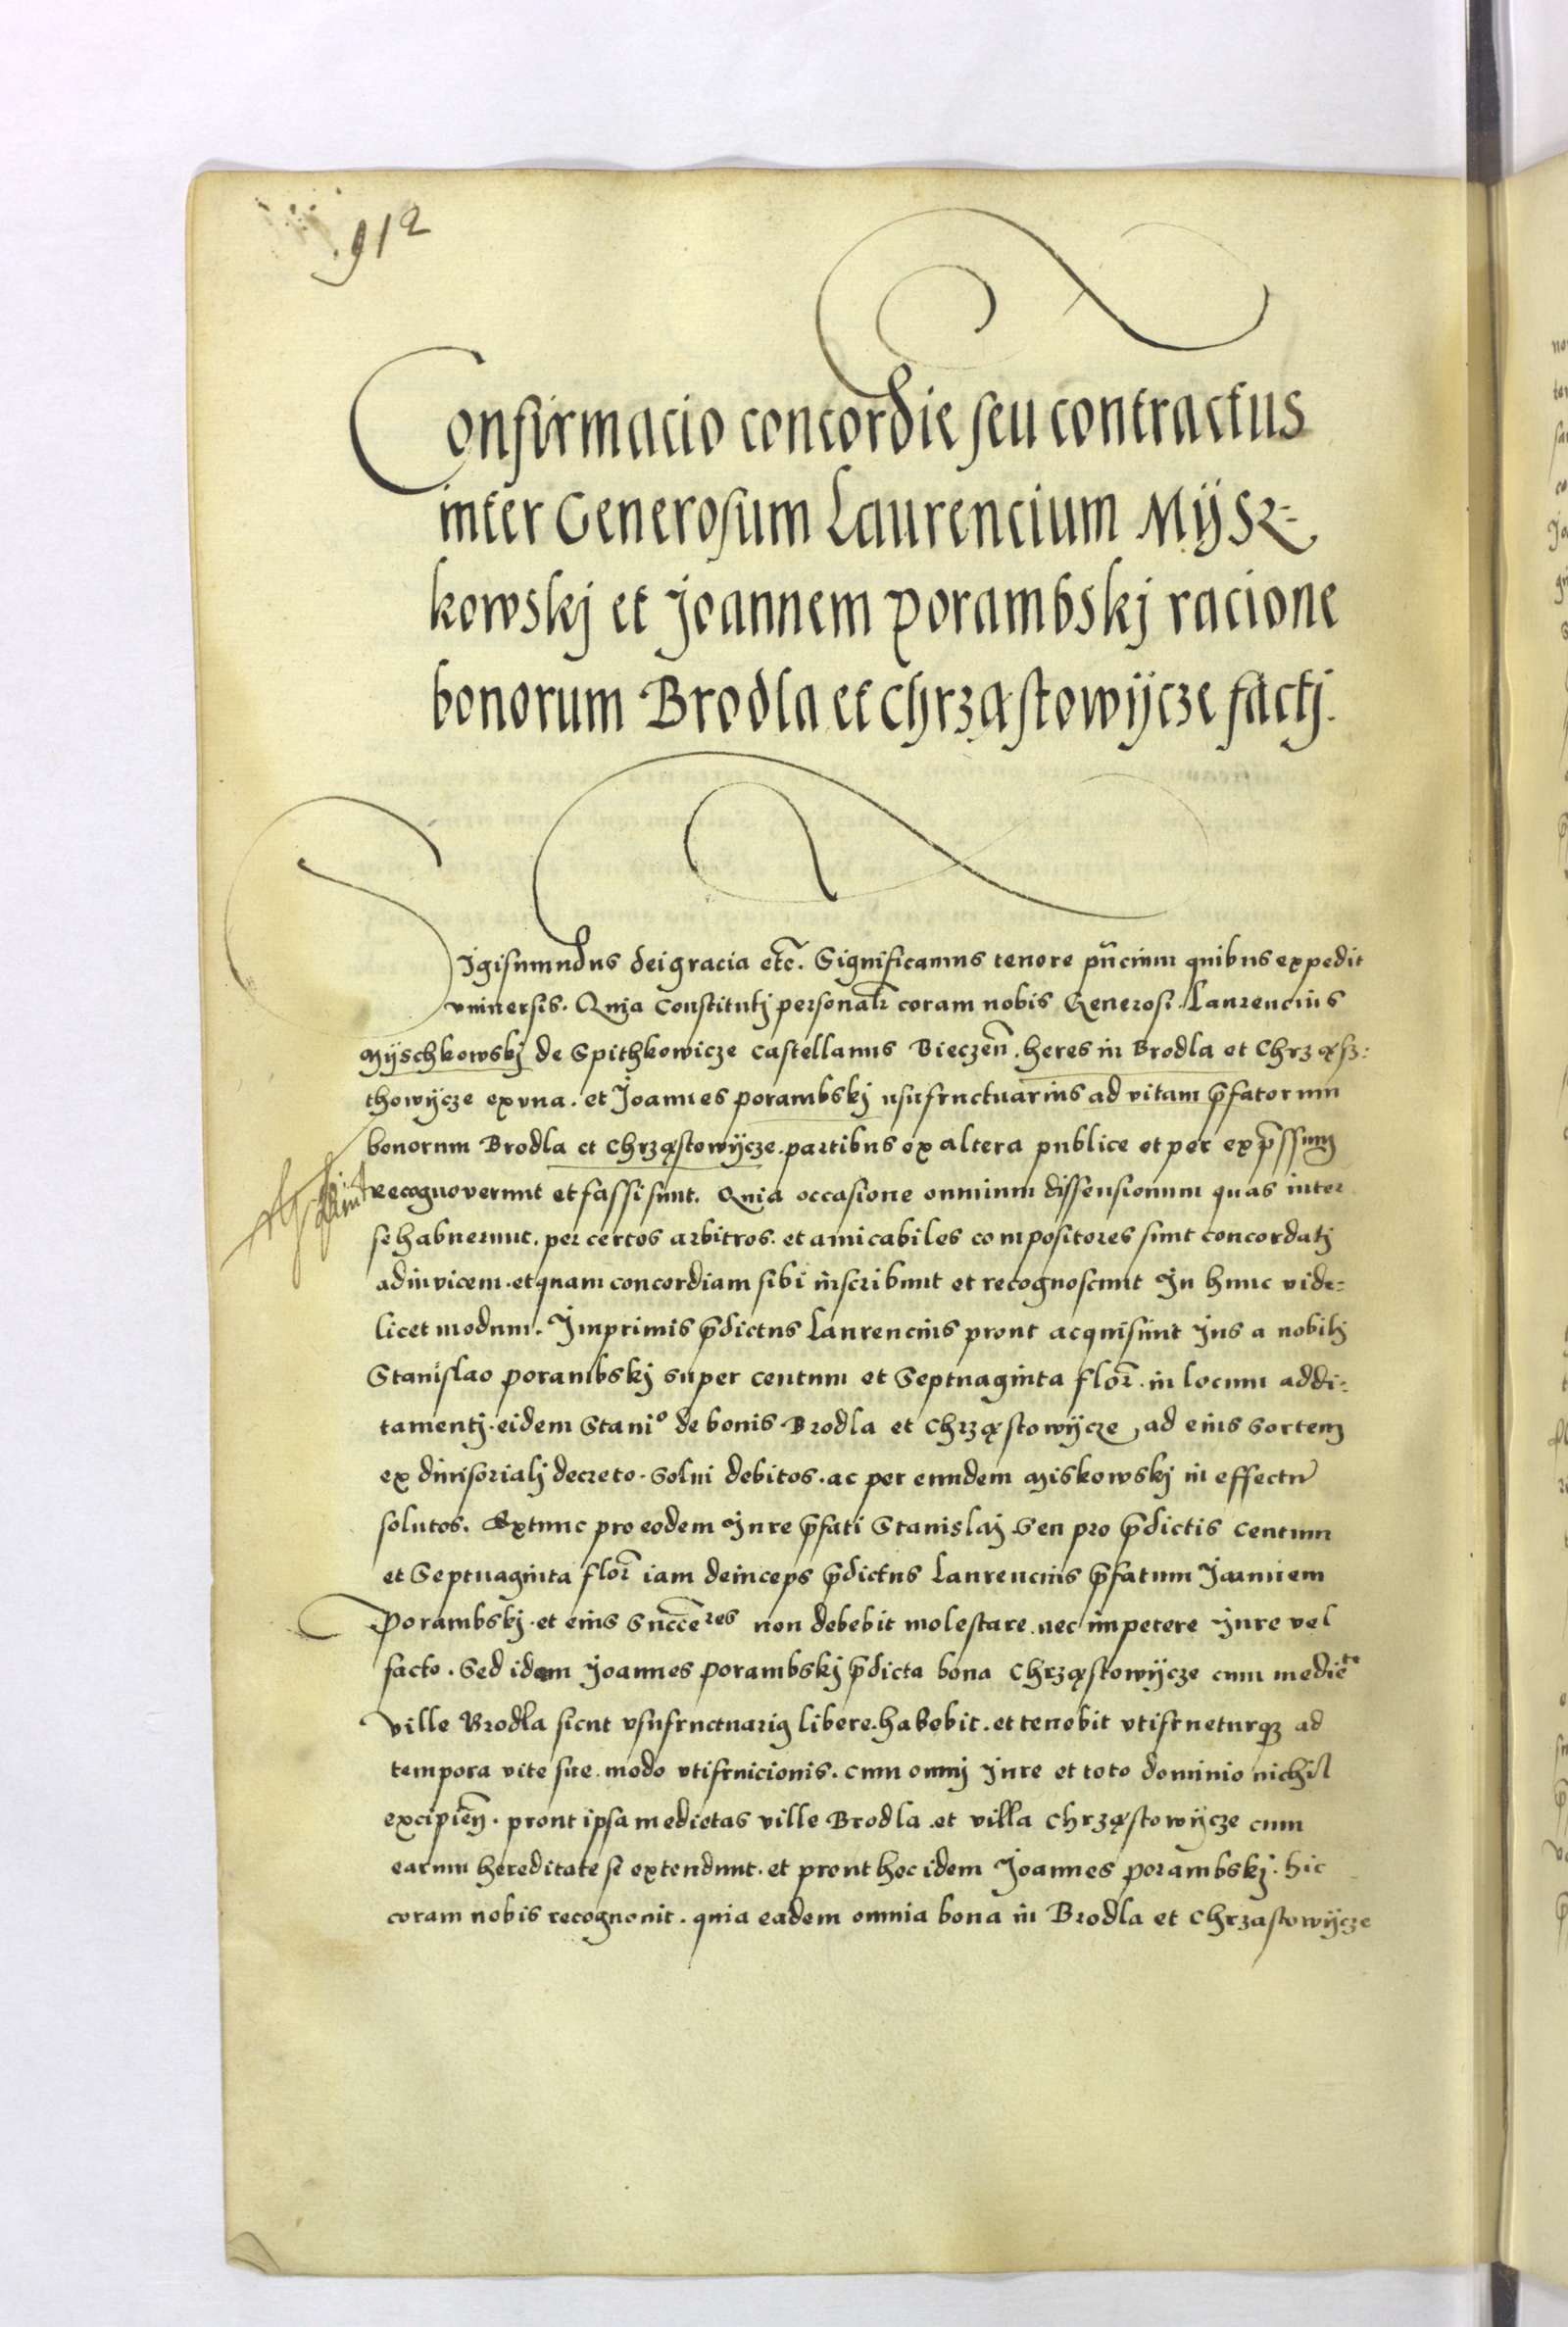 912
Confirmacio concordie seu contractus
inter Generosum Laurencium Mÿsz-
kowskj et Joannem porambskj racione
bonorum Brodla et Chrząstowÿcze factj.
Sigismundus dei gracia etc̃. Significamus tenore pñcium quibus expedit
vniuersis. Quia Constitutj personalr̃ coram nobis Generosi Laurencius
Mÿschkowskj de Spithkowicze Castellanus Bieczeñ. heres in Brodla et Chrząsz:
thowÿcze ex vna. et Joannes porambskj usufructuarius ad vitam p̃fatorum
bonorum Brodla et Chrząstowÿcze. partibus ex altera publice et per exp̃ssum
recognoverunt et fassi sunt. Quia occasione omnium dissensionum quas inter
se habuerunt. per certos arbitros. et amicabiles compositores sunt concordatj
adinvicem. et quam concordiam sibi inscribunt et recognoscunt In hunc vide=
licet modum. Imprimis p̃dictus Laurencius prout acquisiuit Jus a nobilj
Stanislao porambskj super centum et Septuaginta flor̃. in locum addi=
tamentj. eidem Staniº de bonis Brodla et Chrząstowÿcze, ad eius sortem
ex diuisorialj decreto. Solui debitos. ac per eundem Miskowskj in effectu
solutos. Extunc pro eodem Jure p̃fati Stanislaj Seu pro p̃dictis Centum
et Septuaginta flor̃ iam deinceps p̃dictus Laurencius p̃fatum Joannem
Porambskj. et eius Succc̃eres non debebit molestare. nec impetere Jure vel
facto. Sed idem Joannes Porambskj p̃dicta bona Chrząstowÿcze cum medietᵉ
ville Brodla sicut vsufructuarig libere. habebit. et tenebit vtifrueturqȝ ad
tempora vite sue. modo vtifruicionis. cum omnj Jure et toto dominio nichil
excipień. prout ipsa medietas ville Brodla. et villa Chrząstowÿcze cum
earum hereditate se extendunt. et prout hoc idem Joannes porambskj. hic
coram nobis recognouit. quia eadem omnia bona in Brodla et Chrzastowÿcze